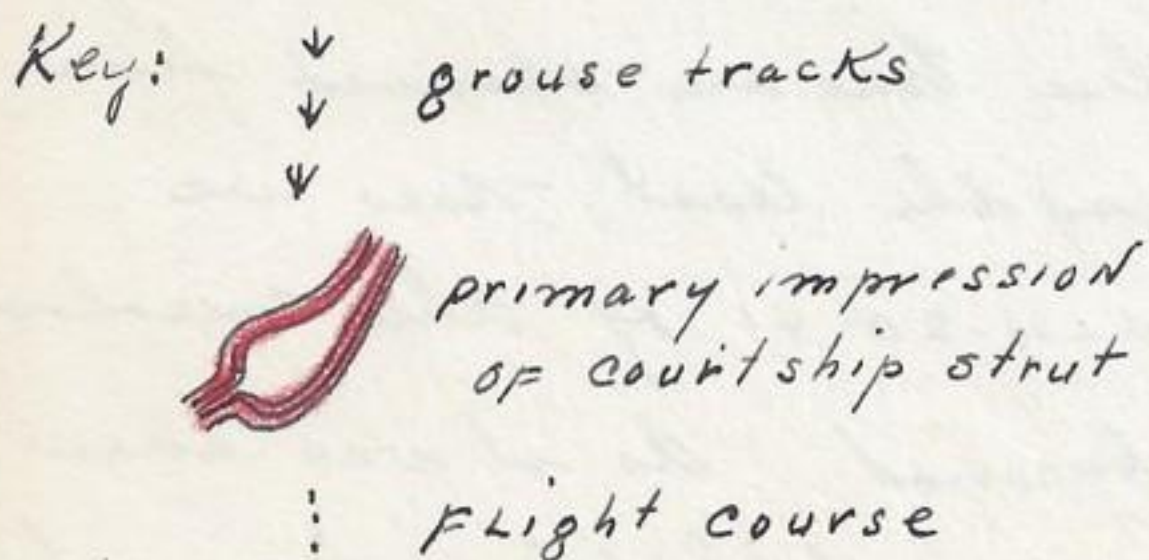 Key: grouse tracks
primary impression
of courtship strut
Flight course